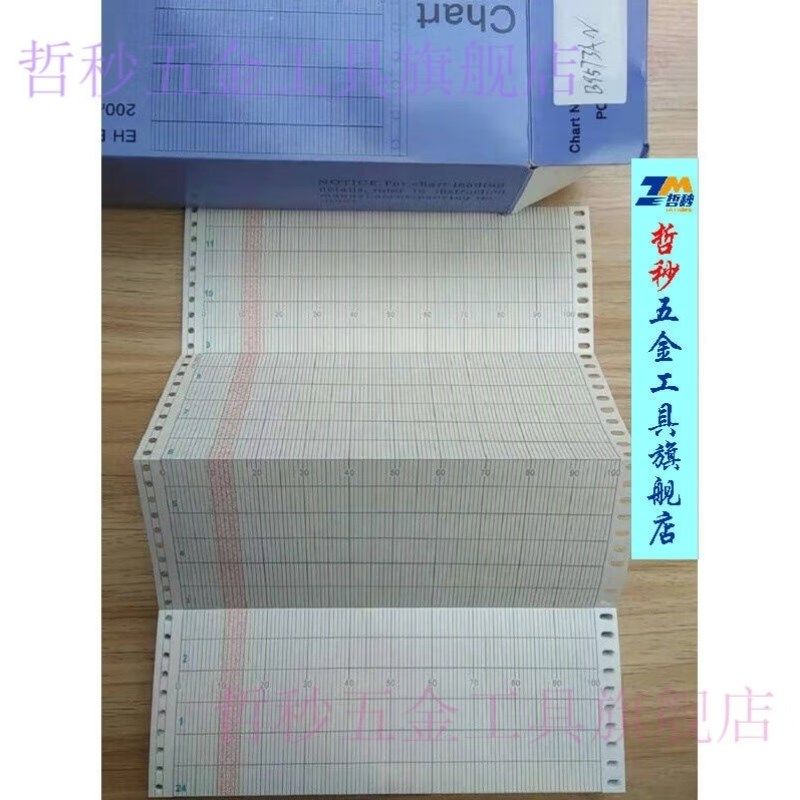 哲秒五金工具旗舰店
Chart
B9573AN
Chart N
PC
200
EH
NOTICE:For chart leading
details,refer to instruction
manual accompanying
ZM
哲秒
哲秒五金工具旗舰店
11
10
0 10 20 30 40 50 60 70 80 90 100
9
8
7
6
0 10 20 30 40 50 60 70 80 90 100
5
4
3
2
0 10 20 30 40 50 60 70 80 90 100
1
24
哲秒五金工具旗舰店